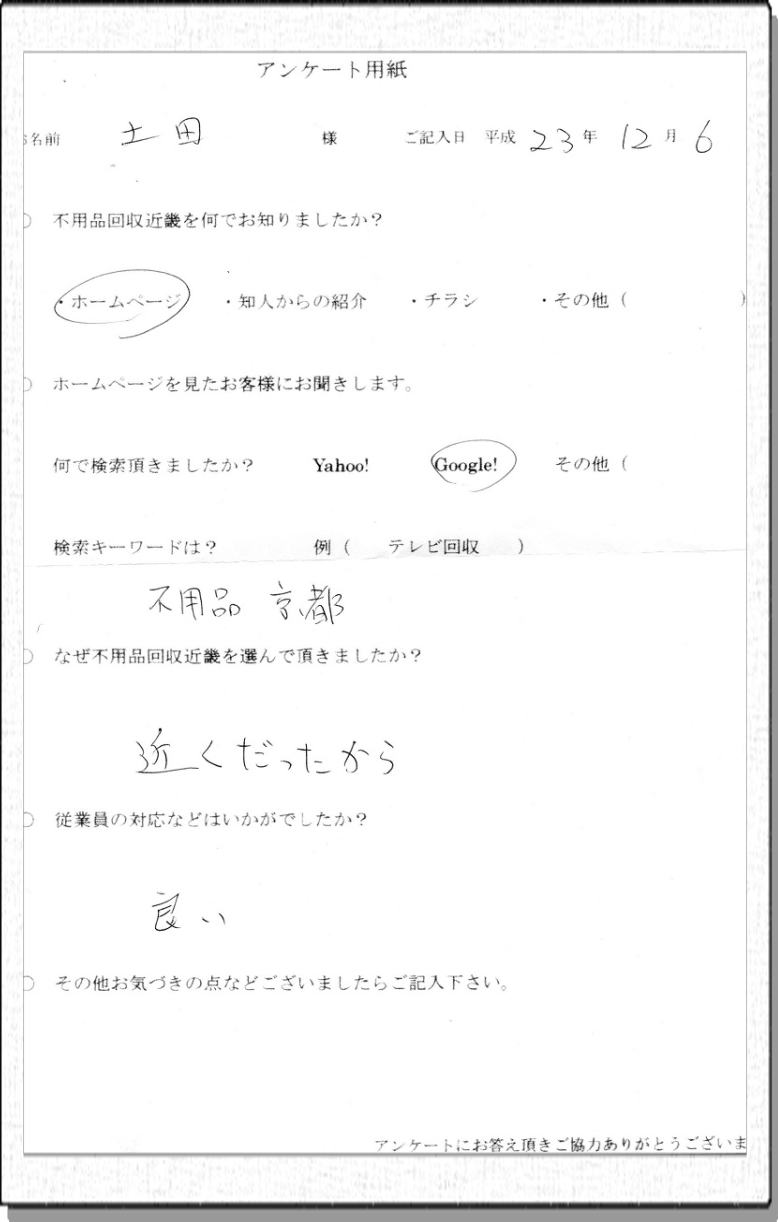 アンケート用紙
名前 土田 様 ご記入日 平成 23年 12月 6
○ 不用品回収近畿を何でお知りましたか？
・ホームページ ・知人からの紹介 ・チラシ ・その他（ ）
○ ホームページを見たお客様にお聞きします。
何で検索頂きましたか？ Yahoo! Google! その他（
検索キーワードは？ 例（ テレビ回収 ）
不用品 京都
○ なぜ不用品回収近畿を選んで頂きましたか？
近くだったから
○ 従業員の対応などはいかがでしたか？
良い
○ その他お気づきの点などございましたらご記入下さい。
アンケートにお答え頂きご協力ありがとうございま